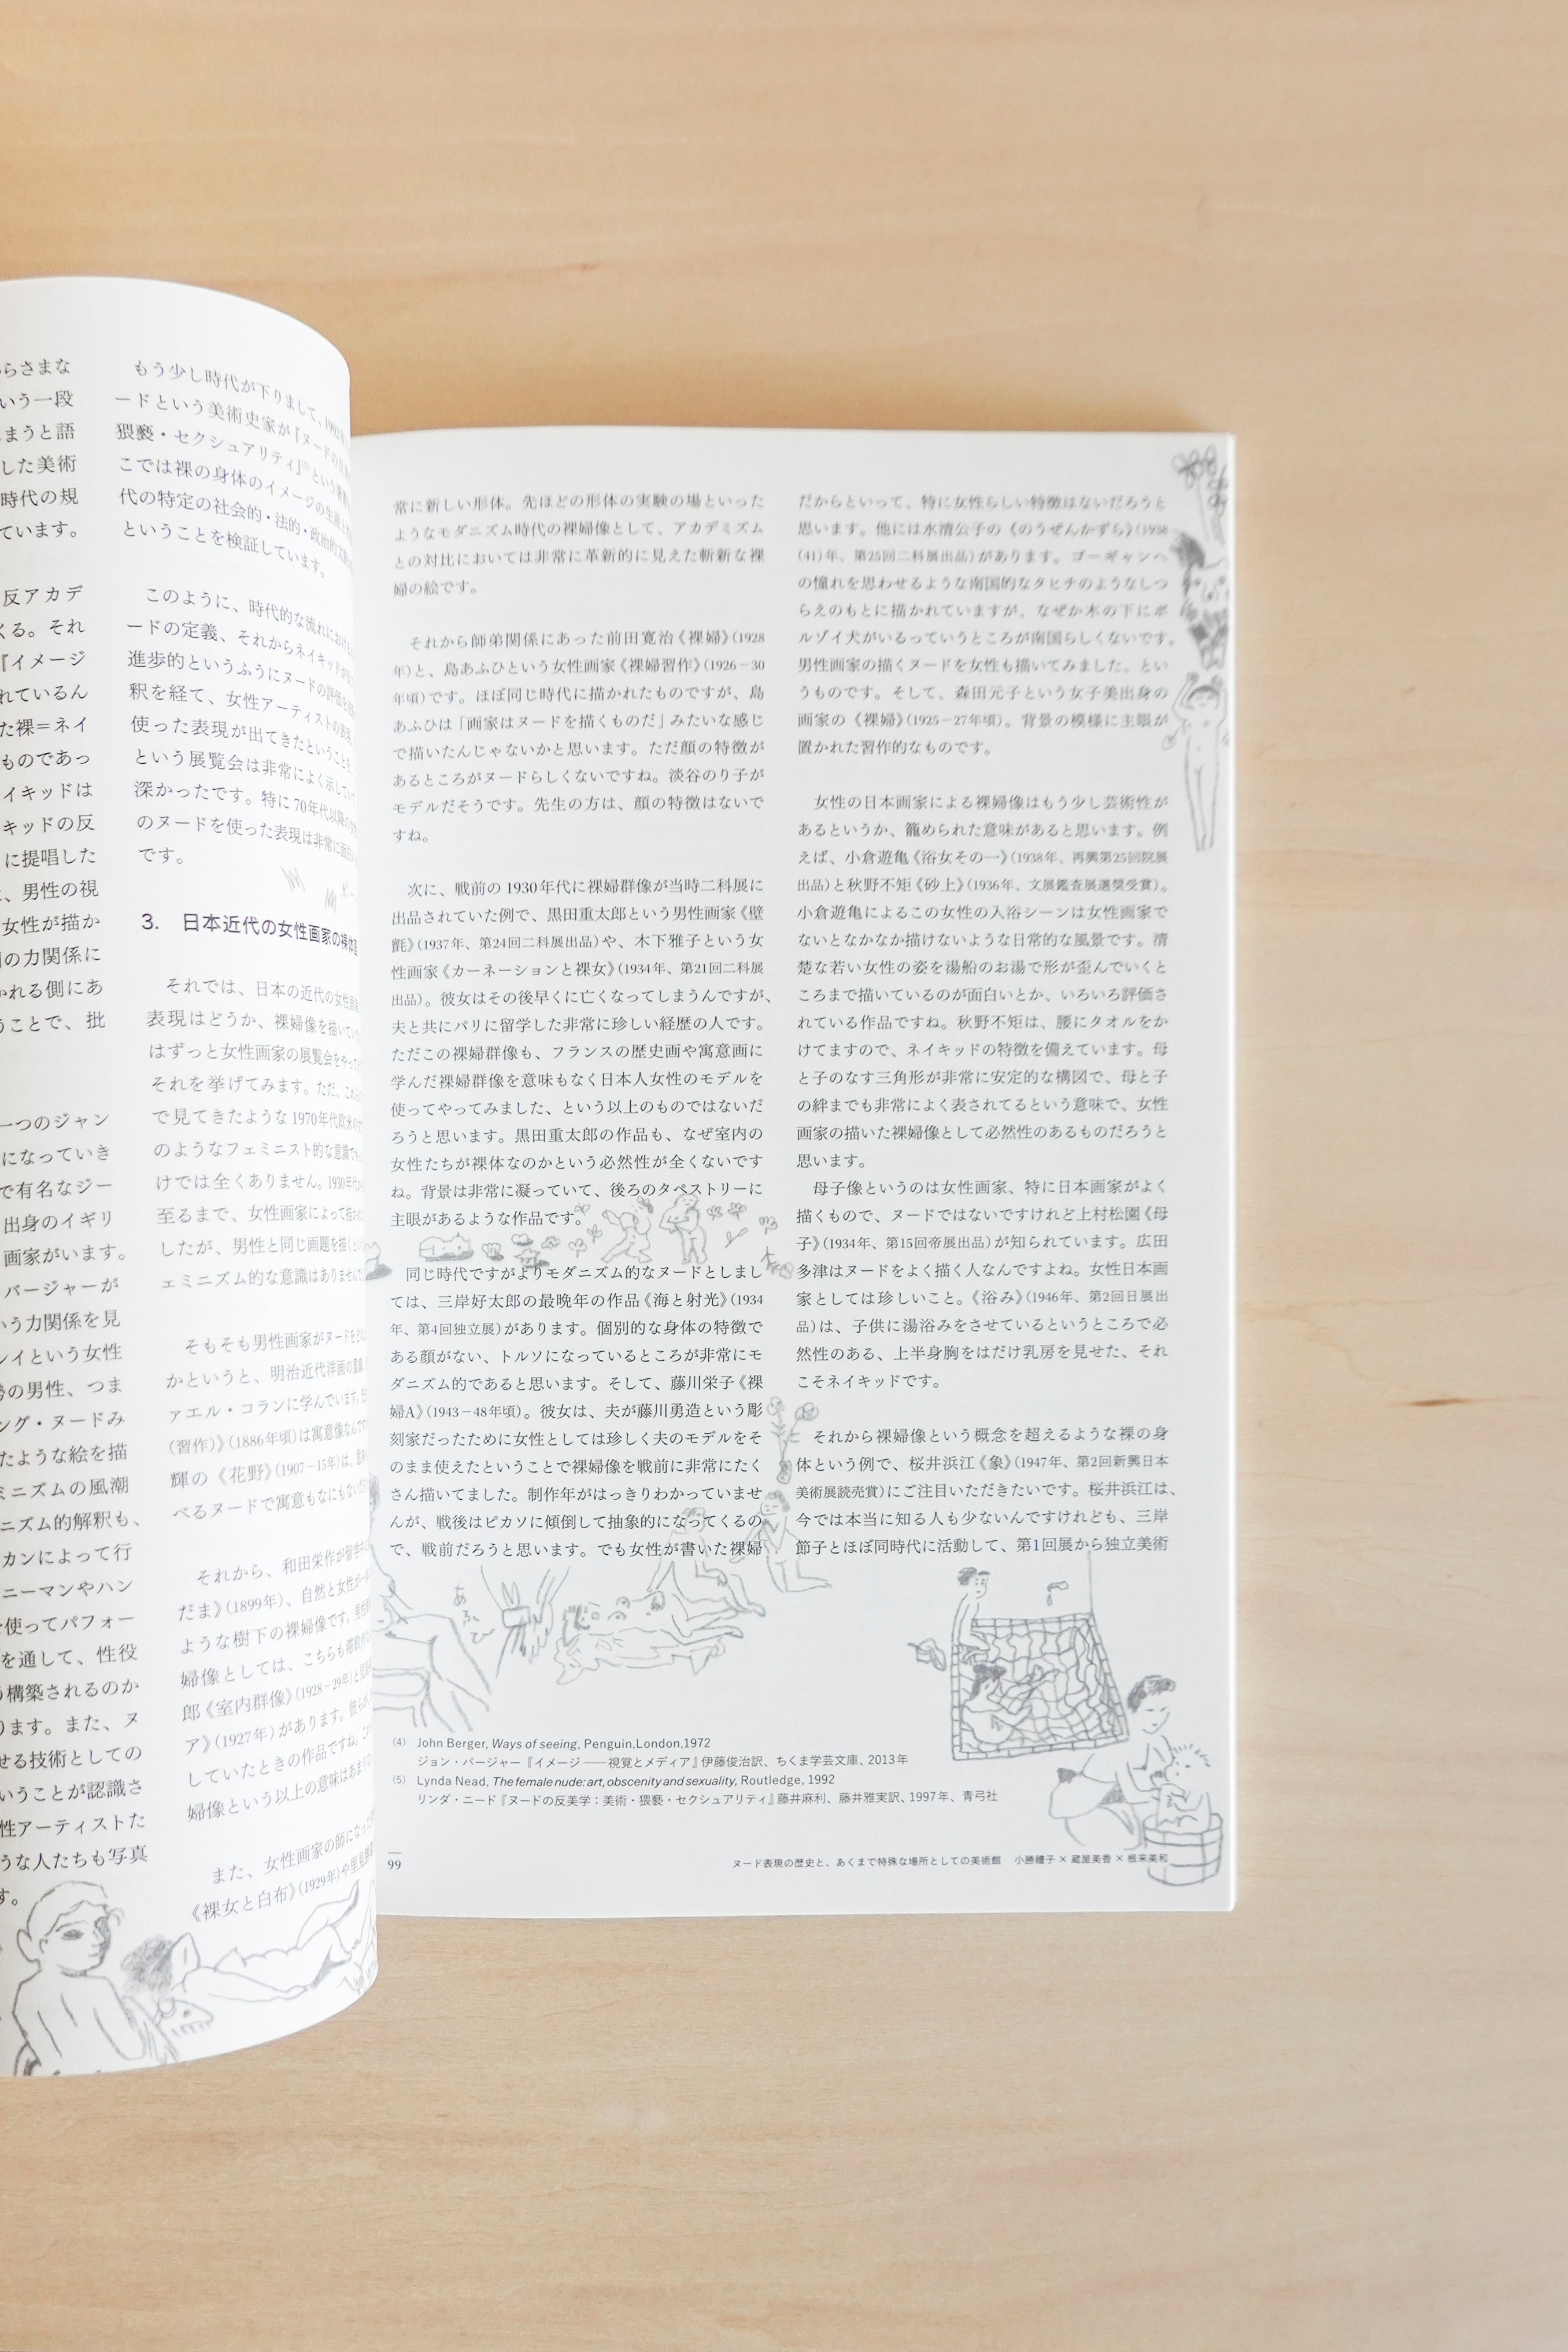 らさまな
いう一段
まうと語
した美術
時代の規
ています。
反アカデ
くる。それ
『イメージ
れているん
た裸＝ネイ
ものであっ
イキッドは
キッドの反
に提唱した
、男性の視
女性が描か
の力関係に
かれる側にあ
うことで、批
一つのジャン
になっていき
で有名なジー
出身のイギリ
画家がいます。
バージャーが
いう力関係を見
レイという女性
勢の男性、つま
ング・ヌードみ
たような絵を描
ミニズムの風潮
ニズム的解釈も、
カンによって行
ニーマンやハン
を使ってパフォー
を通して、性役
う構築されるのか
ります。また、ヌ
せる技術としての
いうことが認識さ
性アーティストた
うな人たちも写真
す。
もう少し時代が下りまして、1992
ードという美術史家が『ヌードの
猥褻・セクシュアリティ』という
こでは裸の身体のイメージの生
代の特定の社会的・法的・政治的
ということを検証しています。
このように、時代的な流れにおけ
ードの定義、それからネイキッドが
進歩的というふうにヌードの評価
釈を経て、女性アーティストの表
使った表現が出てきたということ
という展覧会は非常によく示して
深かったです。特に70年代以降の
のヌードを使った表現は非常に面
です。
3. 日本近代の女性画家の裸体
それでは、日本の近代の女性
表現はどうか、裸婦像を描いて
はずっと女性画家の展覧会をやって
それを挙げてみます。ただ、これ
で見てきたような1970年代欧米の
のようなフェミニスト的な意識で
けでは全くありません。1930年代
至るまで、女性画家によって描か
したが、男性と同じ画題を描く
ェミニズム的な意識はありません
そもそも男性画家がヌードを
かというと、明治近代洋画の重鎮
ァエル・コランに学んでいます。
（習作）》（1886年頃）は寓意像なんで
輝の《花野》（1907−15年）は、
べるヌードで寓意もなにもない
それから、和田栄作が留学
だま》（1899年）、自然と女性が
ような樹下の裸婦像です。
婦像としては、こちらも
郎《室内群像》（1928−29年）と
ア》（1927年）があります。
していたときの作品ですね。
婦像という以上の意味はあま
また、女性画家の師になった
《裸女と白布》（1929年）や
常に新しい形体。先ほどの形体の実験の場といった
ようなモダニズム時代の裸婦像として、アカデミズム
との対比においては非常に革新的に見えた斬新な裸
婦の絵です。
それから師弟関係にあった前田寛治《裸婦》（1928
年）と、島あふひという女性画家《裸婦習作》（1926−30
年頃）です。ほぼ同じ時代に描かれたものですが、島
あふひは「画家はヌードを描くものだ」みたいな感じ
で描いたんじゃないかと思います。ただ顔の特徴が
あるところがヌードらしくないですね。淡谷のり子が
モデルだそうです。先生の方は、顔の特徴はないで
すね。
次に、戦前の1930年代に裸婦群像が当時二科展に
出品されていた例で、黒田重太郎という男性画家《壁
氈》（1937年、第24回二科展出品）や、木下雅子という女
性画家《カーネーションと裸女》（1934年、第21回二科展
出品）。彼女はその後早くに亡くなってしまうんですが、
夫と共にパリに留学した非常に珍しい経歴の人です。
ただこの裸婦群像も、フランスの歴史画や寓意画に
学んだ裸婦群像を意味もなく日本人女性のモデルを
使ってやってみました、という以上のものではないだ
ろうと思います。黒田重太郎の作品も、なぜ室内の
女性たちが裸体なのかという必然性が全くないです
ね。背景は非常に凝っていて、後ろのタペストリーに
主眼があるような作品です。
同じ時代ですがよりモダニズム的なヌードとしまし
ては、三岸好太郎の最晩年の作品《海と射光》（1934
年、第4回独立展）があります。個別的な身体の特徴で
ある顔がない、トルソになっているところが非常にモ
ダニズム的であると思います。そして、藤川栄子《裸
婦A》（1943−48年頃）。彼女は、夫が藤川勇造という彫
刻家だったために女性としては珍しく夫のモデルをそ
のまま使えたということで裸婦像を戦前に非常にたく
さん描いてました。制作年がはっきりわかっていませ
んが、戦後はピカソに傾倒して抽象的になってくるの
で、戦前だろうと思います。でも女性が書いた裸婦
だからといって、特に女性らしい特徴はないだろうと
思います。他には水清公子の《のうぜんかずら》（1938
（41）年、第25回二科展出品）があります。ゴーギャンへ
の憧れを思わせるような南国的なタヒチのようなしつ
らえのもとに描かれていますが、なぜか木の下にボ
ルゾイ犬がいるっていうところが南国らしくないです。
男性画家の描くヌードを女性も描いてみました、とい
うものです。そして、森田元子という女子美出身の
画家の《裸婦》（1925−27年頃）。背景の模様に主眼が
置かれた習作的なものです。
女性の日本画家による裸婦像はもう少し芸術性が
あるというか、籠められた意味があると思います。例
えば、小倉遊亀《浴女その一》（1938年、再興第25回院展
出品）と秋野不矩《砂上》（1936年、文展鑑査展選奨受賞）。
小倉遊亀によるこの女性の入浴シーンは女性画家で
ないとなかなか描けないような日常的な風景です。清
楚な若い女性の姿を湯船のお湯で形が歪んでいくと
ころまで描いているのが面白いとか、いろいろ評価さ
れている作品ですね。秋野不矩は、腰にタオルをか
けてますので、ネイキッドの特徴を備えています。母
と子のなす三角形が非常に安定的な構図で、母と子
の絆までも非常によく表されてるという意味で、女性
画家の描いた裸婦像として必然性のあるものだろうと
思います。
母子像というのは女性画家、特に日本画家がよく
描くもので、ヌードではないですけれど上村松園《母
子》（1934年、第15回帝展出品）が知られています。広田
多津はヌードをよく描く人なんですよね。女性日本画
家としては珍しいこと。《浴み》（1946年、第2回日展出
品）は、子供に湯浴みをさせているというところで必
然性のある、上半身胸をはだけ乳房を見せた、それ
こそネイキッドです。
それから裸婦像という概念を超えるような裸の身
体という例で、桜井浜江《象》（1947年、第2回新興日本
美術展読売賞）にご注目いただきたいです。桜井浜江は、
今では本当に知る人も少ないんですけれども、三岸
節子とほぼ同時代に活動して、第1回展から独立美術
あふひ
(4) John Berger, Ways of seeing, Penguin,London,1972
ジョン・バージャー『イメージ――視覚とメディア』伊藤俊治訳、ちくま学芸文庫、2013年
(5) Lynda Nead, The female nude: art, obscenity and sexuality, Routledge, 1992
リンダ・ニード『ヌードの反美学：美術・猥褻・セクシュアリティ』藤井麻利、藤井雅実訳、1997年、青弓社
99
ヌード表現の歴史と、あくまで特殊な場所としての美術館 小勝禮子 × 蔵屋美香 × 根来美和